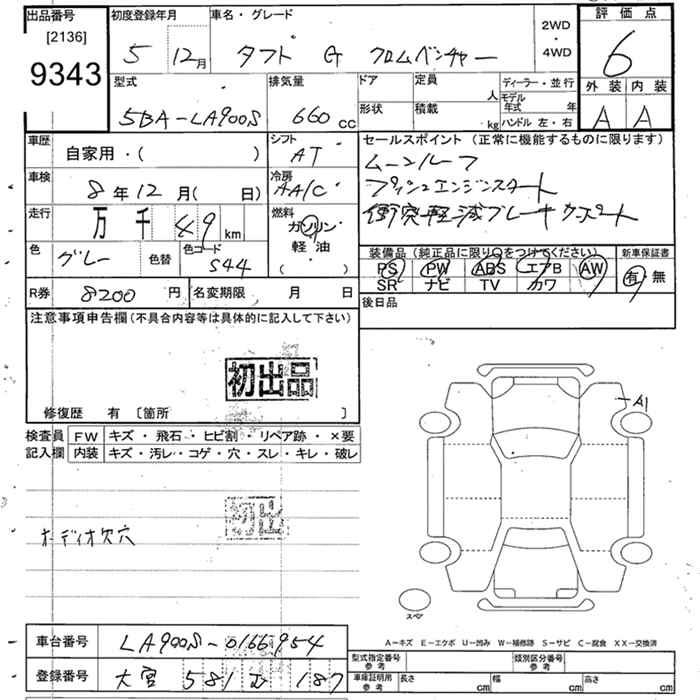 出品番号 初度登録年月 車名・グレード 2WD・4WD 評価点
[2136] 9343
5 12月 タフト G クロムベンチャー 6
型式 排気量 ドア 定員 人 ディーラー・並行 外装 内装
5BA-LA900S 660 cc 形状 積載 kg モデル年式 年 ハンドル 左・右 A A
車歴 自家用・( ) シフト AT セールスポイント (正常に機能するものに限ります)
車検 8年12月( 日) 冷房 AA/C ムーンルーフ
プッシュエンジンスタート
走行 万 千 49 km 燃料 ガソリン・軽油・( ) 衝突軽減ブレーキサポート
色 グレー 色替 色コード S44 装備品 (純正品に限り○をつけてください) 新車保証書
PS PW ABS エアB AW 有・無
SR ナビ TV カワ
R券 8200円 名変期限 月 日 後日品
注意事項申告欄 (不具合内容等は具体的に記入して下さい)
初出品
修復歴 有 〔箇所 〕
A1
検査員記入欄 FW キズ・飛石・ヒビ割・リペア跡・×要
内装 キズ・汚レ・コゲ・穴・スレ・キレ・破レ
初出
オーディオ欠穴
スペア
車台番号 LA900S-0166954
A-キズ E-エクボ U-凹み W-補修跡 S-サビ C-腐食 XX-交換済
型式指定番号 参考 類別区分番号 参考
登録番号 大宮 581 187
車庫証明用 参考 長さ cm 幅 cm 高さ cm